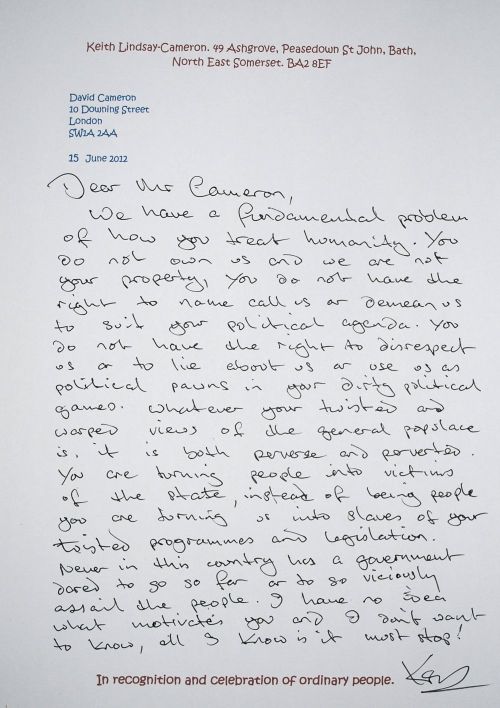 Keith Lindsay-Cameron. 49 Ashgrove, Peasedown St John, Bath,
North East Somerset. BA2 8EF
David Cameron
10 Downing Street
London
SW1A 2AA
15 June 2012
Dear Mr Cameron,
We have a fundamental problem
of how you treat humanity. You
do not own us and we are not
your property, you do not have the
right to name call us or demean us
to suit your political agenda. You
do not have the right to disrespect
us or to lie about us or use us as
political pawns in your dirty political
games. Whatever your twisted and
warped views of the general populace
is, it is both perverse and perverted.
You are turning people into victims
of the state, instead of being people
you are turning us into slaves of your
twisted programmes and legislation.
Never in this country has a government
dared to go so far or to so viciously
assail the people. I have no idea
what motivates you and I don't want
to know, all I know is it must stop!
In recognition and celebration of ordinary people.